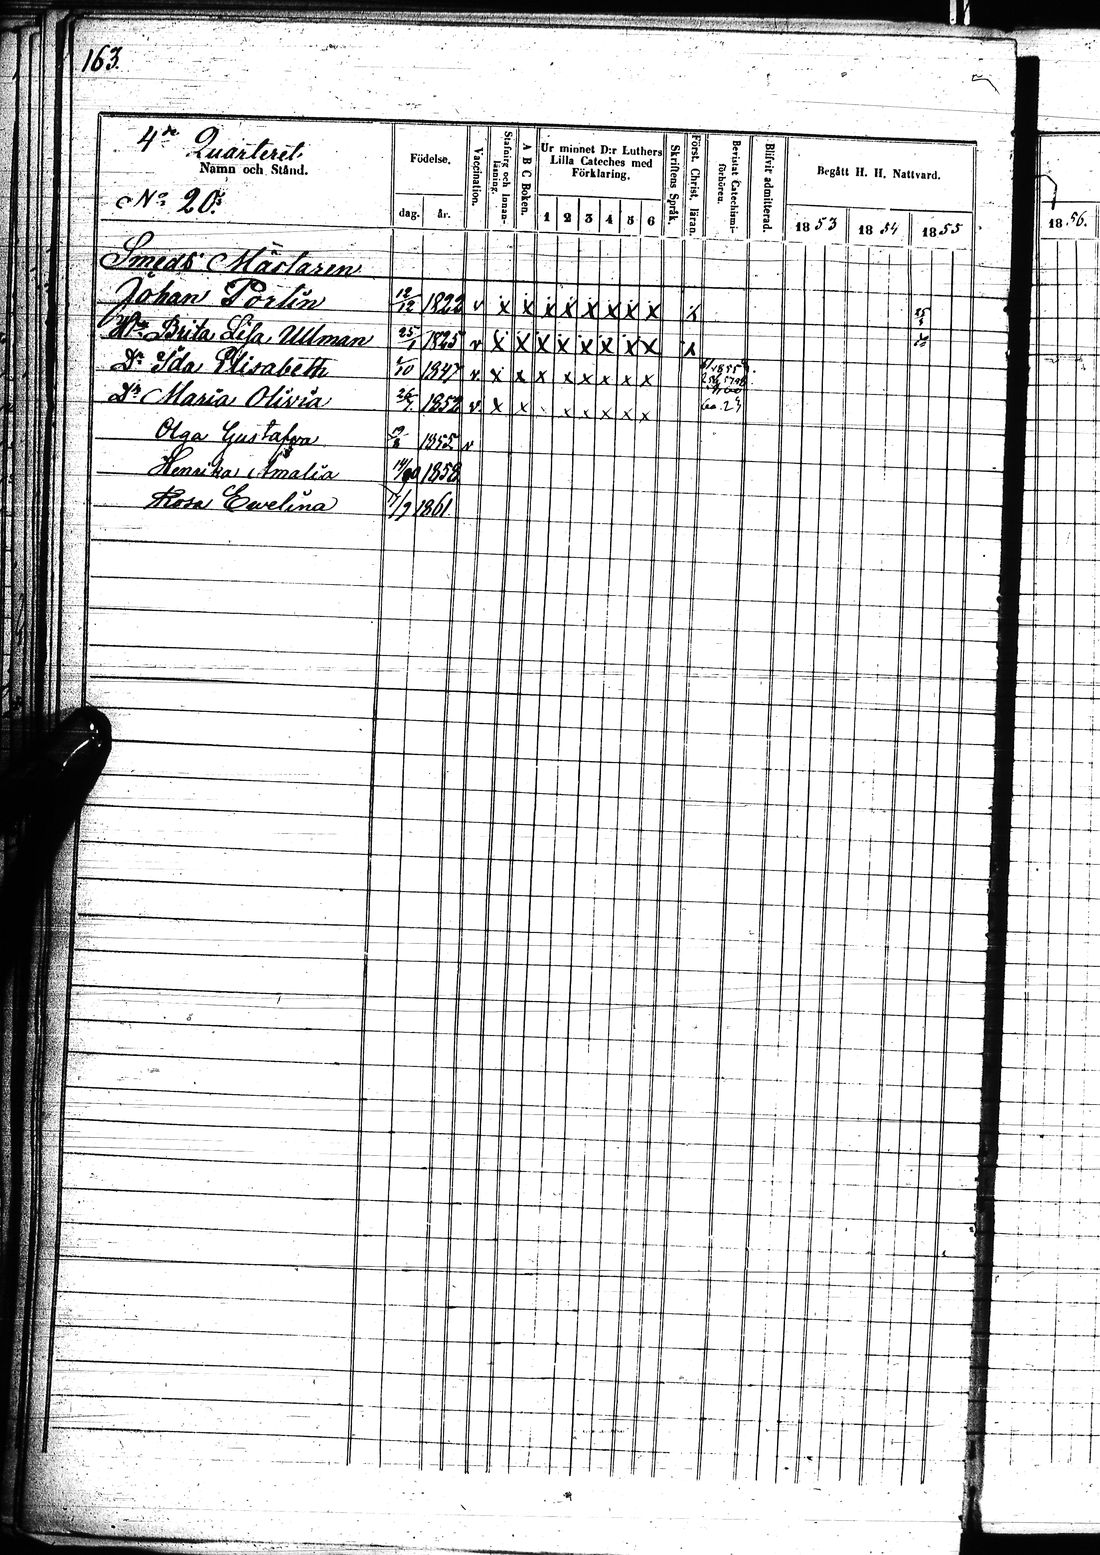 163.
4de Quarteret.
Namn och Stånd.
No 20.
Födelse.
dag. år.
Vaccination.
Stafning och Innan-läsning.
A B C Boken.
Ur minnet D:r Luthers Lilla Cateches med Förklaring.
1 2 3 4 5 6
Skriftens Språk.
Först. Christ. läran.
Bevistat Catechismi-förhören.
Blifvir admitterad.
Begått H. H. Nattvard.
1853 1854 1855
1856.
Smeds Mästaren
Johan Portin 12/12 1822 v x x x x x x x x x
Brita Lisa Ullman 25/1 1825 v x x x x x x x x x
Dr Ida Elisabeth /10 1847 v. x x x x x x x x
Dr Maria Olivia 1852 v. x x x x x x x
Olga Gustafva 1855 v
Henrika Amalia 1858
Rosa Ewelina 7/9 1861.